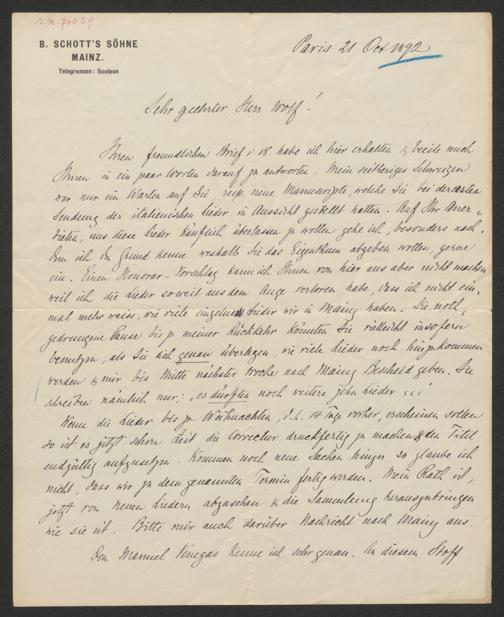 B. SCHOTT'S SÖHNE
MAINZ.
Telegramme: Scotson
Paris 21 Oct 1892
Sehr geehrter Herr Wolf!
Ihren freundlichen Brief v. 18. habe ich hier erhalten & beeile mich
Ihnen in ein paar Worten darauf zu antworten. Mein seitheriges Schweigen
war nur ein Warten auf Sie, resp. neue Manuscripte, welche Sie bei der ersten
Sendung der italienischen Lieder in Aussicht gestellt hatten. Auf Ihr Aner-
bieten, uns diese Lieder käuflich überlassen zu wollen gehe ich, besonders nach-
dem ich den Grund kenne weshalb Sie das Eigenthum abgeben wollen, gerne
ein. Einen Honorar-Vorschlag kann ich Ihnen von hier aus aber nicht machen,
weil ich die Lieder soweit aus dem Auge verloren habe, dass ich nicht ein-
mal mehr weiss, wie viele einzelne Lieder wir in Mainz haben. Die noth-
gedrungene Pause bis zu meiner Rückkehr könnten Sie vielleicht insofern
benutzen, als Sie sich genau überlegen, wie viele Lieder noch hinzukommen
werden & mir bis Mitte nächster Woche nach Mainz Bescheid geben. Sie
schreiben nämlich nur: "es dürften noch weitere zehn Lieder ...!
Wenn die Lieder bis zu Weihnachten, d.h. 14 Tage vorher, erscheinen sollen
so ist es jetzt schon Zeit die Correctur druckfertig zu machen & den Titel
endgültig aufzusetzen. Kommen noch neue Sachen hinzu so glaube ich
nicht, dass wir zu dem genannten Termin fertig werden. Mein Rath ist,
jetzt von neuen Liedern abzusehen & die Sammlung herauszubringen
wie sie ist. Bitte mir auch darüber Nachricht nach Mainz aus.
Den Manuel Venegas kenne ich sehr genau. An diesem Stoff